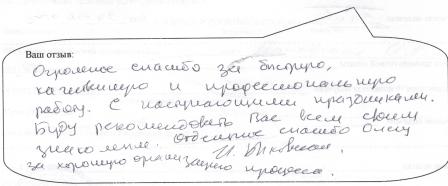 Ваш отзыв:
Огромное спасибо за быструю,
качественную и профессиональную
работу. С наступающими праздниками.
Буду рекомендовать Вас всем своим
знакомым. Отдельное спасибо Олегу
за хорошую организацию процесса.